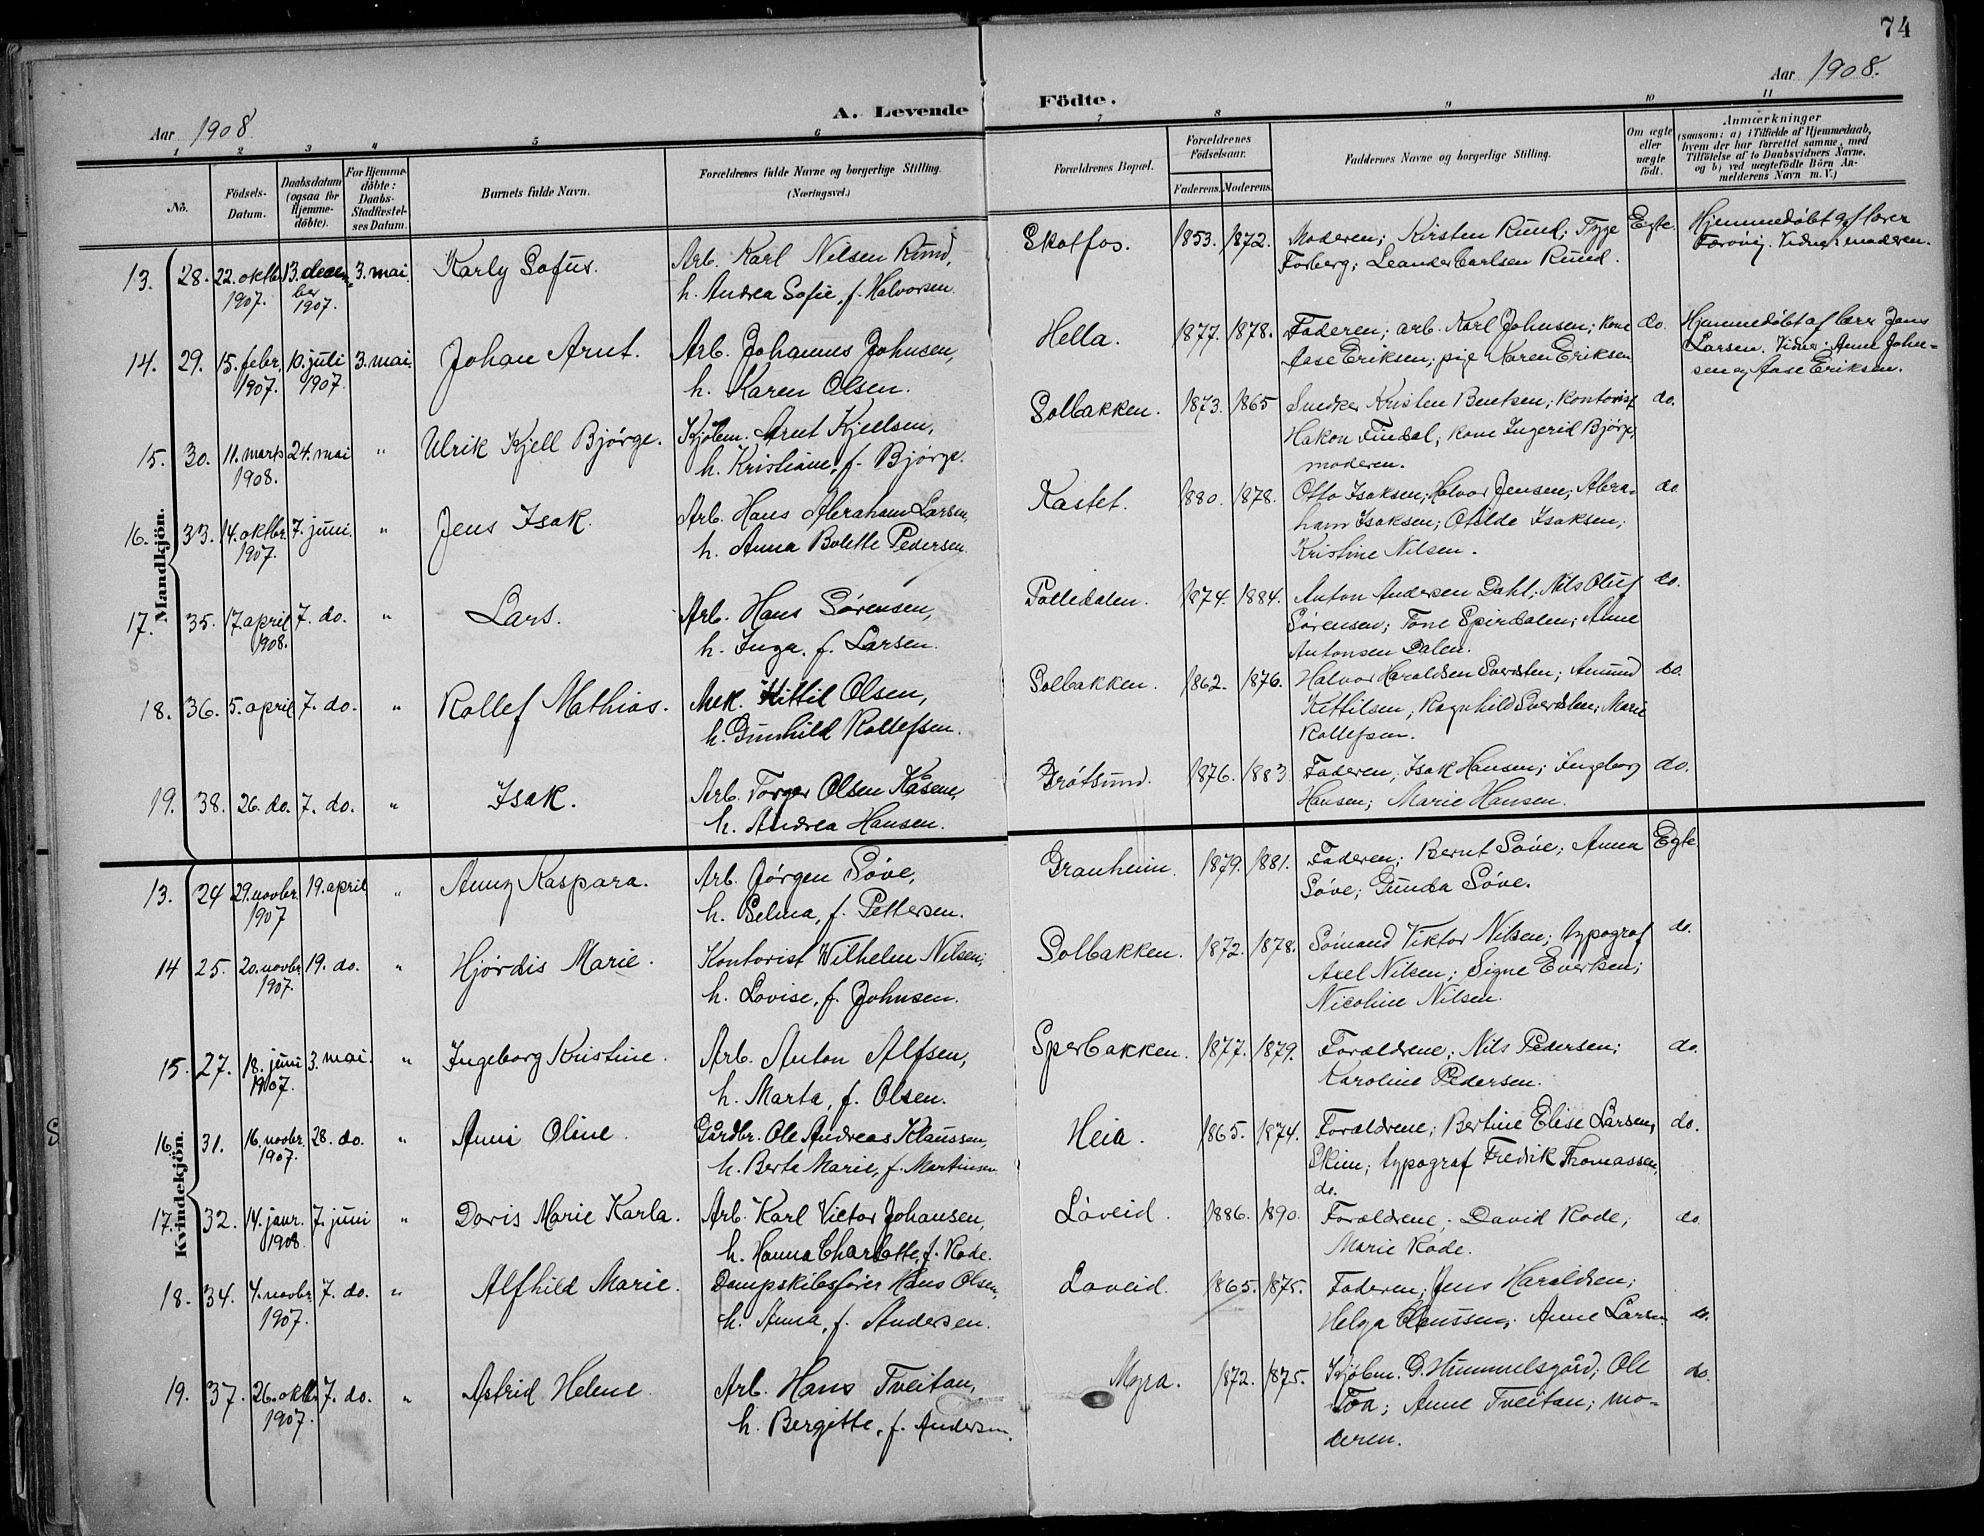 74
Aar 1908.
Aar 1908.
A. Levende Födte.
1 2 3 4 5 6 7 8 9 10 11
Nö.
Födsels-Datum.
Daabsdatum (ogsaa for Hjemme-döbte).
For Hjemme-döbte: Daabs-Stadfæstel-ses Datum.
Barnets fulde Navn.
Forældrenes fulde Navne og borgerlige Stilling.
(Næringsvei.)
Forældrenes Bopæl.
Forældrenes Födselsaar.
Faderens. Moderens.
Faddernes Navne og borgerlige Stilling.
Om ægte eller uægte födt.
Anmærkninger
(saasom: a) i Tilfælde af Hjemmedaab,
hvem der har forrettet samme, med
Tilföielse af to Daabsvidners Navne,
og b) ved uægtefödte Börn An-
melderens Navn m. V.)
Mandkjön.
13. 28. 22. oktbr. 1907. 13. decem-ber 1907. 3. mai. Karly Sofus. Arb. Karl Nilsen Ruud,
h. Andrea Sofie, f. Halvorsen.
Skotfos. 1853. 1872. Moderen; Kirsten Ruud; Tyge
Forberg; Leander Carlsen Ruud.
Egte. Hjemmedøbt af lærer
Færøvig. Vidner: moderen.
14. 29. 15. febr. 1907. 10. juli 1907. 3. mai. Johan Arnt. Arb. Johannes Johnsen,
h. Karen Olsen.
Hella. 1877. 1878. Faderen; arb. Karl Johnsen; kone
Aase Eriksen; pige Karen Eriksen
do. Hjemmedøbt af lærer Jens
Larsen. Vidner: Anne John-
sen og Aase Eriksen.
15. 30. 11. marts 1908. 24. mai " Ulrik Kjell Bjørge. Kjøbm. Arnt Kjellsen,
h. Kristiane, f. Bjørge.
Solbakken. 1873. 1865 Snedker Kristen Bentsen; kontorist
Hakon Findal; kone Ingerid Bjørge;
moderen.
do.
16. 33. 14. oktbr. 1907. 7. juni. " Jens Isak. Arb. Hans Abraham Larsen,
h. Anna Bolette Pedersen.
Kastet. 1880. 1878. Otto Isaksen; Halvor Jensen; Abra-
ham Isaksen; Otilde Isaksen;
Kristine Nilsen.
do.
17. 35. 17. april 1908. 7. do. " Lars. Arb. Hans Sørensen,
h. Inga, f. Larsen.
1874. 1884. Anton Andersen Dahl; Nils Oluf
Sørensen; Tone Spirdalen; Anne
Antonsen Dalen.
do.
18. 36. 5. april 7. do. " Rollef Mathias. Mek. Kittil Olsen,
h. Gunhild Rollefsen.
Solbakken. 1862. 1876. Halvor Haraldsen Sverdsten; Amund
Kittilsen; Ragnhild Sverdsten; Marie
Rollefsen.
do.
19. 38. 26. do. 7. do. " Isak. Arb. Torger Olsen Kåsene,
h. Andrea Hansen.
Grötsund. 1876. 1883. Faderen; Isak Hansen; Ingeborg
Hansen; Marie Hansen.
do.
Kvindekjön.
13. 24 29. novbr. 1907 19. april " Anny Kaspara. Arb. Jørgen Søve,
h. Selma, f. Pettersen.
Granheim. 1879. 1881. Faderen; Bernt Søve; Anna
Søve; Gunda Søve.
Egte
14 25. 20. novbr. 1907. 19. do. " Hjørdis Marie. Kontorist Wilhelm Nilsen,
h. Lovise, f. Johnsen.
Solbakken. 1872. 1878. Sømand Viktor Nilsen; typograf
Axel Nilsen; Signe Evertsen;
Nicoline Nilsen.
do.
15. 27. 18. juni 1907. 3. mai. " Ingeborg Kristine. Arb. Anton Alfsen,
h. Marta, f. Olsen.
Sperbakken. 1877. 1879. Forældrene; Nils Pedersen;
Karoline Pedersen.
do.
16. 31. 16. novbr. 1907. 28. do. " Anni Oline. Gårdbr. Ole Andreas Klaussen,
h. Berte Marie, f. Martinsen
Heia. 1865. 1874. Forældrene; Bertine Elise Larsen,
Skien; typograf Fredrik Thomassen,
do.
do.
17. 32. 14. janr. 1908 7. juni " Doris Marie Karla. Arb. Karl Victor Johansen,
h. Hanna Charlotte, f. Rode.
Løveid. 1886. 1890. Forældrene; David Rode;
Marie Rode.
do.
18. 34. 4. novbr. 1907. 7. do. " Alfhild Marie. Dampskibsfører Hans Olsen,
h. Anna, f. Andersen.
Løveid. 1865. 1875. Faderen; Jens Haraldsen;
Helga Claussen; Anne Larsen
do.
19. 37. 26. oktbr. 1907. 7. do. " Astrid Helene. Arb. Hans Tveitan,
h. Bergitte, f. Andersen.
Myra. 1872. 1875. Kjøbm. G. Hummelsgård; Ole
Toa; Anne Tveitan; mo-
deren.
do.